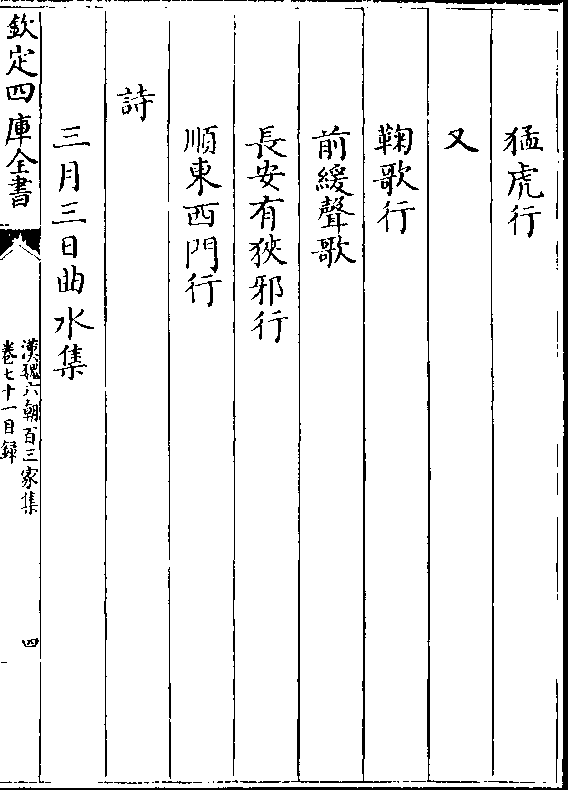 猛虎行
又
鞠歌行
前緩聲歌
長安有狹邪行
順東西門行
詩
三月三日曲水集
欽定四庫全書
漢魏六朝百三家集
卷七十一目録
四